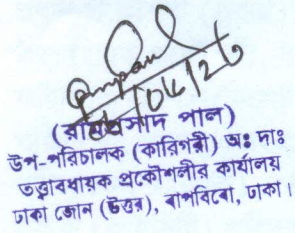 (রামপ্রসাদ পাল)
উপ-পরিচালক (কারিগরী) অঃ দাঃ
তত্ত্বাবধায়ক প্রকৌশলীর কার্যালয়
ঢাকা জোন (উত্তর), বাপবিবো, ঢাকা।